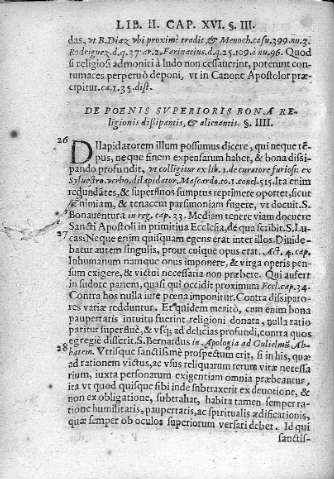 LIB. II. CAP. XVI. §. III.
das, vt B. Diaz vbi proximè tradit, & Menoch. casu, 399. nu. 2.
Rodriguez d. q. 27. ar. 2. Farinacius, d. q. 25. 109. à nu. 96. Quod
si religiosi admoniti à ludo non cessauerint, poterunt con-
tumaces perpetuò deponi, vt in Canone Apostolor præ-
cipitur. ca. 1. 35. dist.
DE POENIS SVPERIORIS BONA RE-
ligionis dissipantis, & alienantis. §. IIII.
26
DIlapidatorem illum possumus dicere, qui neque tē-
pus, neque finem expensarum habet, & bona dissi-
pando profundit, vt colligitur ex lib. 1. de curatore furiosi: ex
Syluestro. verbo. dilapidator, Mascardo. to. 1. concl. 515. Ita enim
redundātes, & superfluos sumptus reprimere oportet, sicut
& nimiam, & tenacem parsimoniam fugere, vt docuit. S.
Bonauentura in reg. cap. 23. Mediam tenere viam docuere
27
Sancti Apostoli in primitiua Ecclesia, de qua scribit. S. Lu-
cas: Neque enim quisquam egens erat inter illos. Diuide-
batur autem singulis, prout cuique opus erat. Act. 4. cap.
Inhumanum namque onus imponere, & virga operis pen-
sum exigere, & victui necessaria non præbere. Qui aufert
in sudore panem, quasi qui occidit proximum Eccl. cap. 34.
Contra hos nulla iure pœna imponitur. Contra dissipato-
res variæ redduntur. Et quidem meritò, cum enim bona
paupertatis intuitu fuerint religioni donata, nulla ratio
patitur superfluè, & vsq; ad delicias profundi, contra quos
egregiè disserit. S. Bernardus in Apologia ad Gulielmū Ab-
28
batem. Vtrisque sanctissimè prospectum erit, si in his, quæ
ad rationem victus, ac vsus reliquarum rerum vitæ necessa
rium, iuxta personarum exigentiam omnia præbeantur,
ita vt quod quisque sibi inde subtraxerit ex deuotione, &
non ex obligatione, subtrahat, habita tamen semper ra-
tione humilitatis, paupertatis, ac spiritualis ædificationis,
quæ semper ob oculos superiorum versari debet. Id qui
sanctis-